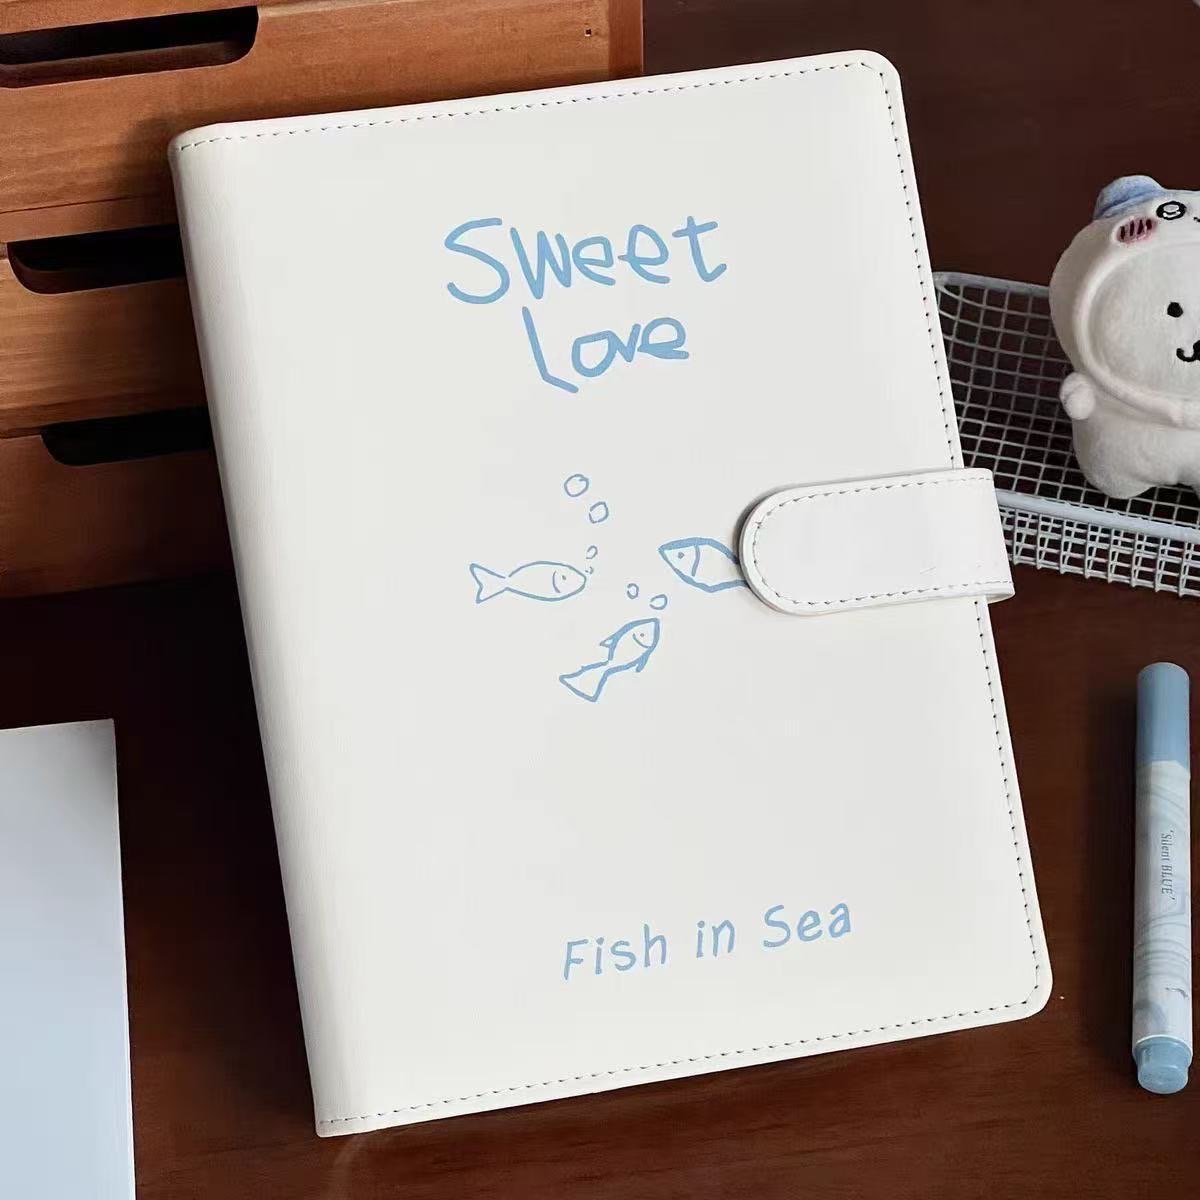 Sweet
Love
Fish in Sea
'Silent BLUE'